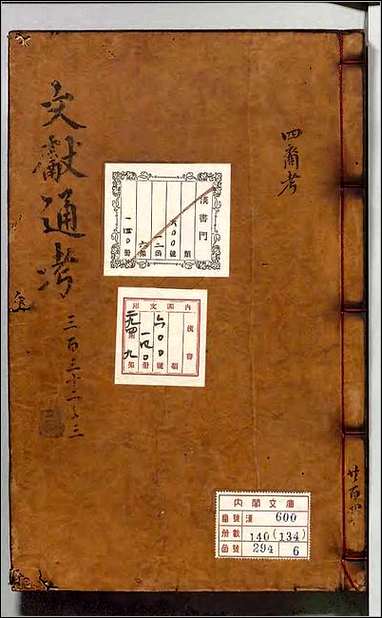 文獻通考
三百三十二之三
四裔考
漢書門
類
六〇〇號
一二函
六架
一四〇冊
內閣文庫
漢書
六〇〇
一四〇
二九四
九
類
號
冊
內閣文庫
番號 漢 600
冊數 140(134)
函號 294 6